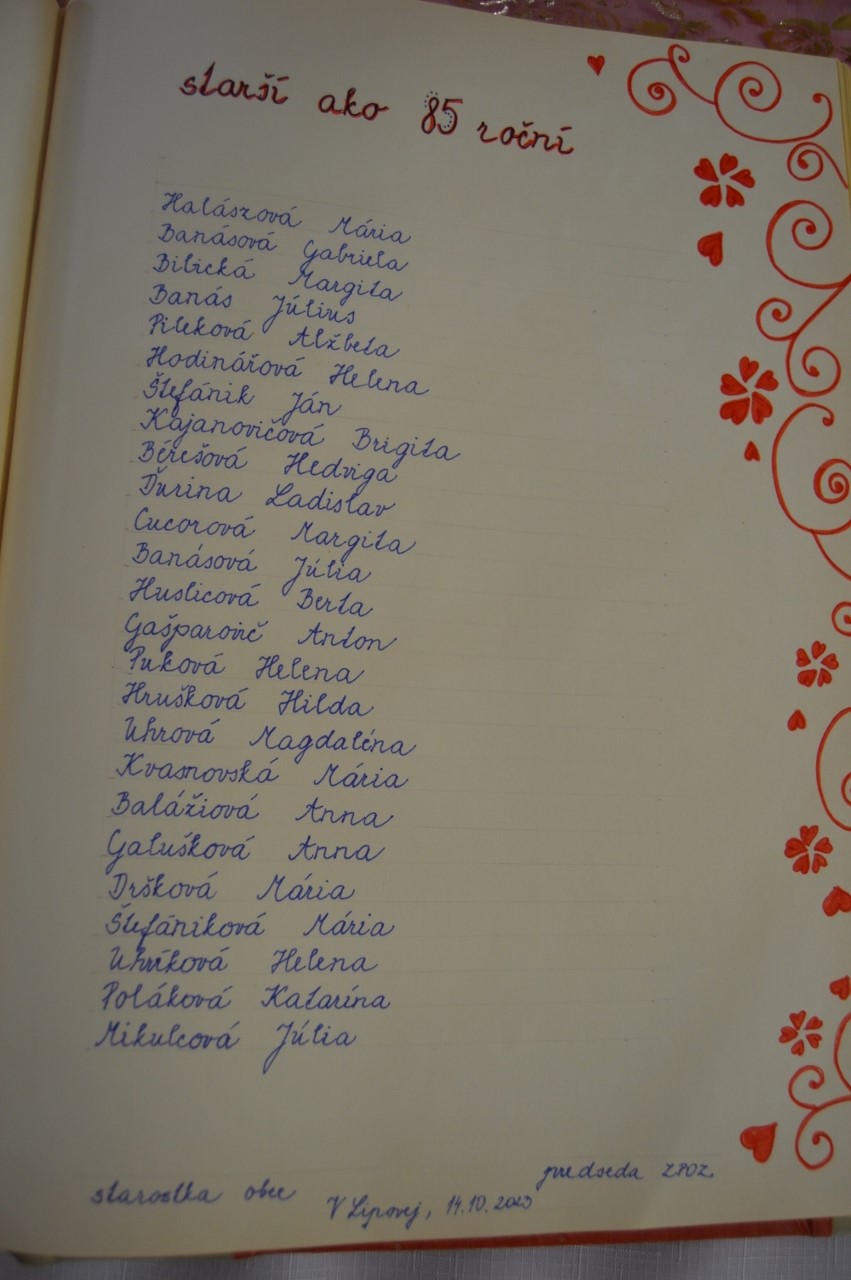 starší ako 85 roční
Halászová Mária
Banásová Gabriela
Bilická Margita
Banás Július
Pileková Alžbeta
Hodinářová Helena
Štefánik Ján
Kajanovičová Brigita
Bérešová Hedviga
Ďurina Ladislav
Cucorová Margita
Banásová Júlia
Huslicová Berta
Gašparovič Anton
Puková Helena
Hrušková Hilda
Uhrová Magdaléna
Kvasnovská Mária
Balážiová Anna
Galušková Anna
Dršková Mária
Štefániková Mária
Uhríková Helena
Poláková Katarína
Mikulcová Júlia
predseda ZPOZ
starostka obce
V Lipovej, 14.10.2023